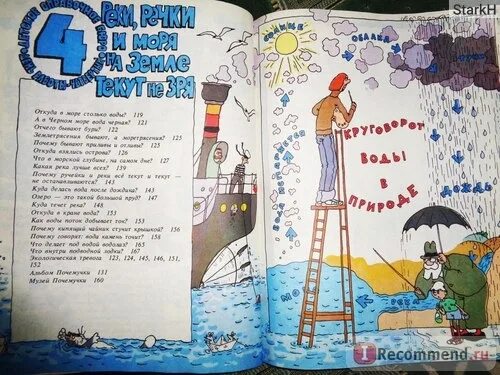 StarkH
4
Реки, речки
и моря
на Земле
текут не зря
Откуда в море столько воды? 119
А в Черном море вода черная? 121
Отчего бывают бури? 122
Землетрясения бывают, а моретрясения? 125
Почему бывают приливы и отливы? 125
Откуда взялись острова? 126
Что в морской глубине, на самом дне? 127
Какая река лучше всех? 139
Почему ручейки и реки всё текут и текут —
не останавливаются? 143
Куда делась вода после дождика? 145
Озеро — это такой большой пруд? 147
Куда течет река? 148
Откуда в кране вода? 153
Как воды поток добывает ток? 153
Почему кипящий чайник стучит крышкой? 156
Почему говорят: вода камень точит? 158
Что делает под водой водолаз? 165
Что внутри подводной лодки? 167
Экологическая тревога 123, 124, 145, 146, 151,
152
Альбом Почемучки 131
Музей Почемучки 160
СОЛНЦЕ
ОБЛАКА
ТУЧА
ВОДА ИСПАРЯЕТСЯ
КРУГОВОРОТ
ВОДЫ
В
ПРИРОДЕ
ДОЖДЬ
МОРЕ
РЕКА
I Recommend.ru